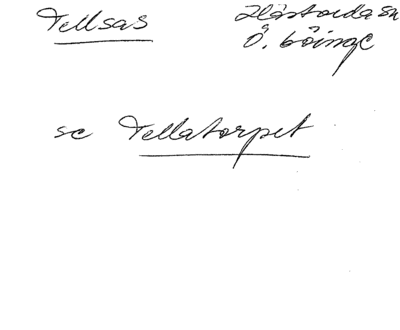 Tellsas
Hästveda sn
Ö. Göinge
se Tellatorpet